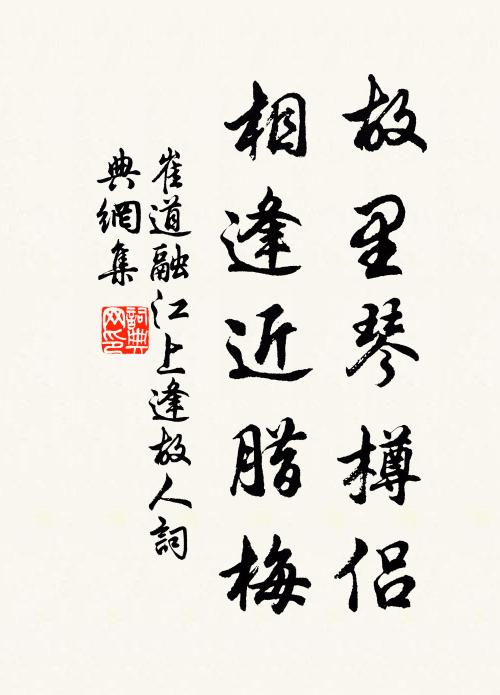 故里琴樽侶
相逢近腊梅
崔道融江上逢故人詞
典網集
詞典
网印